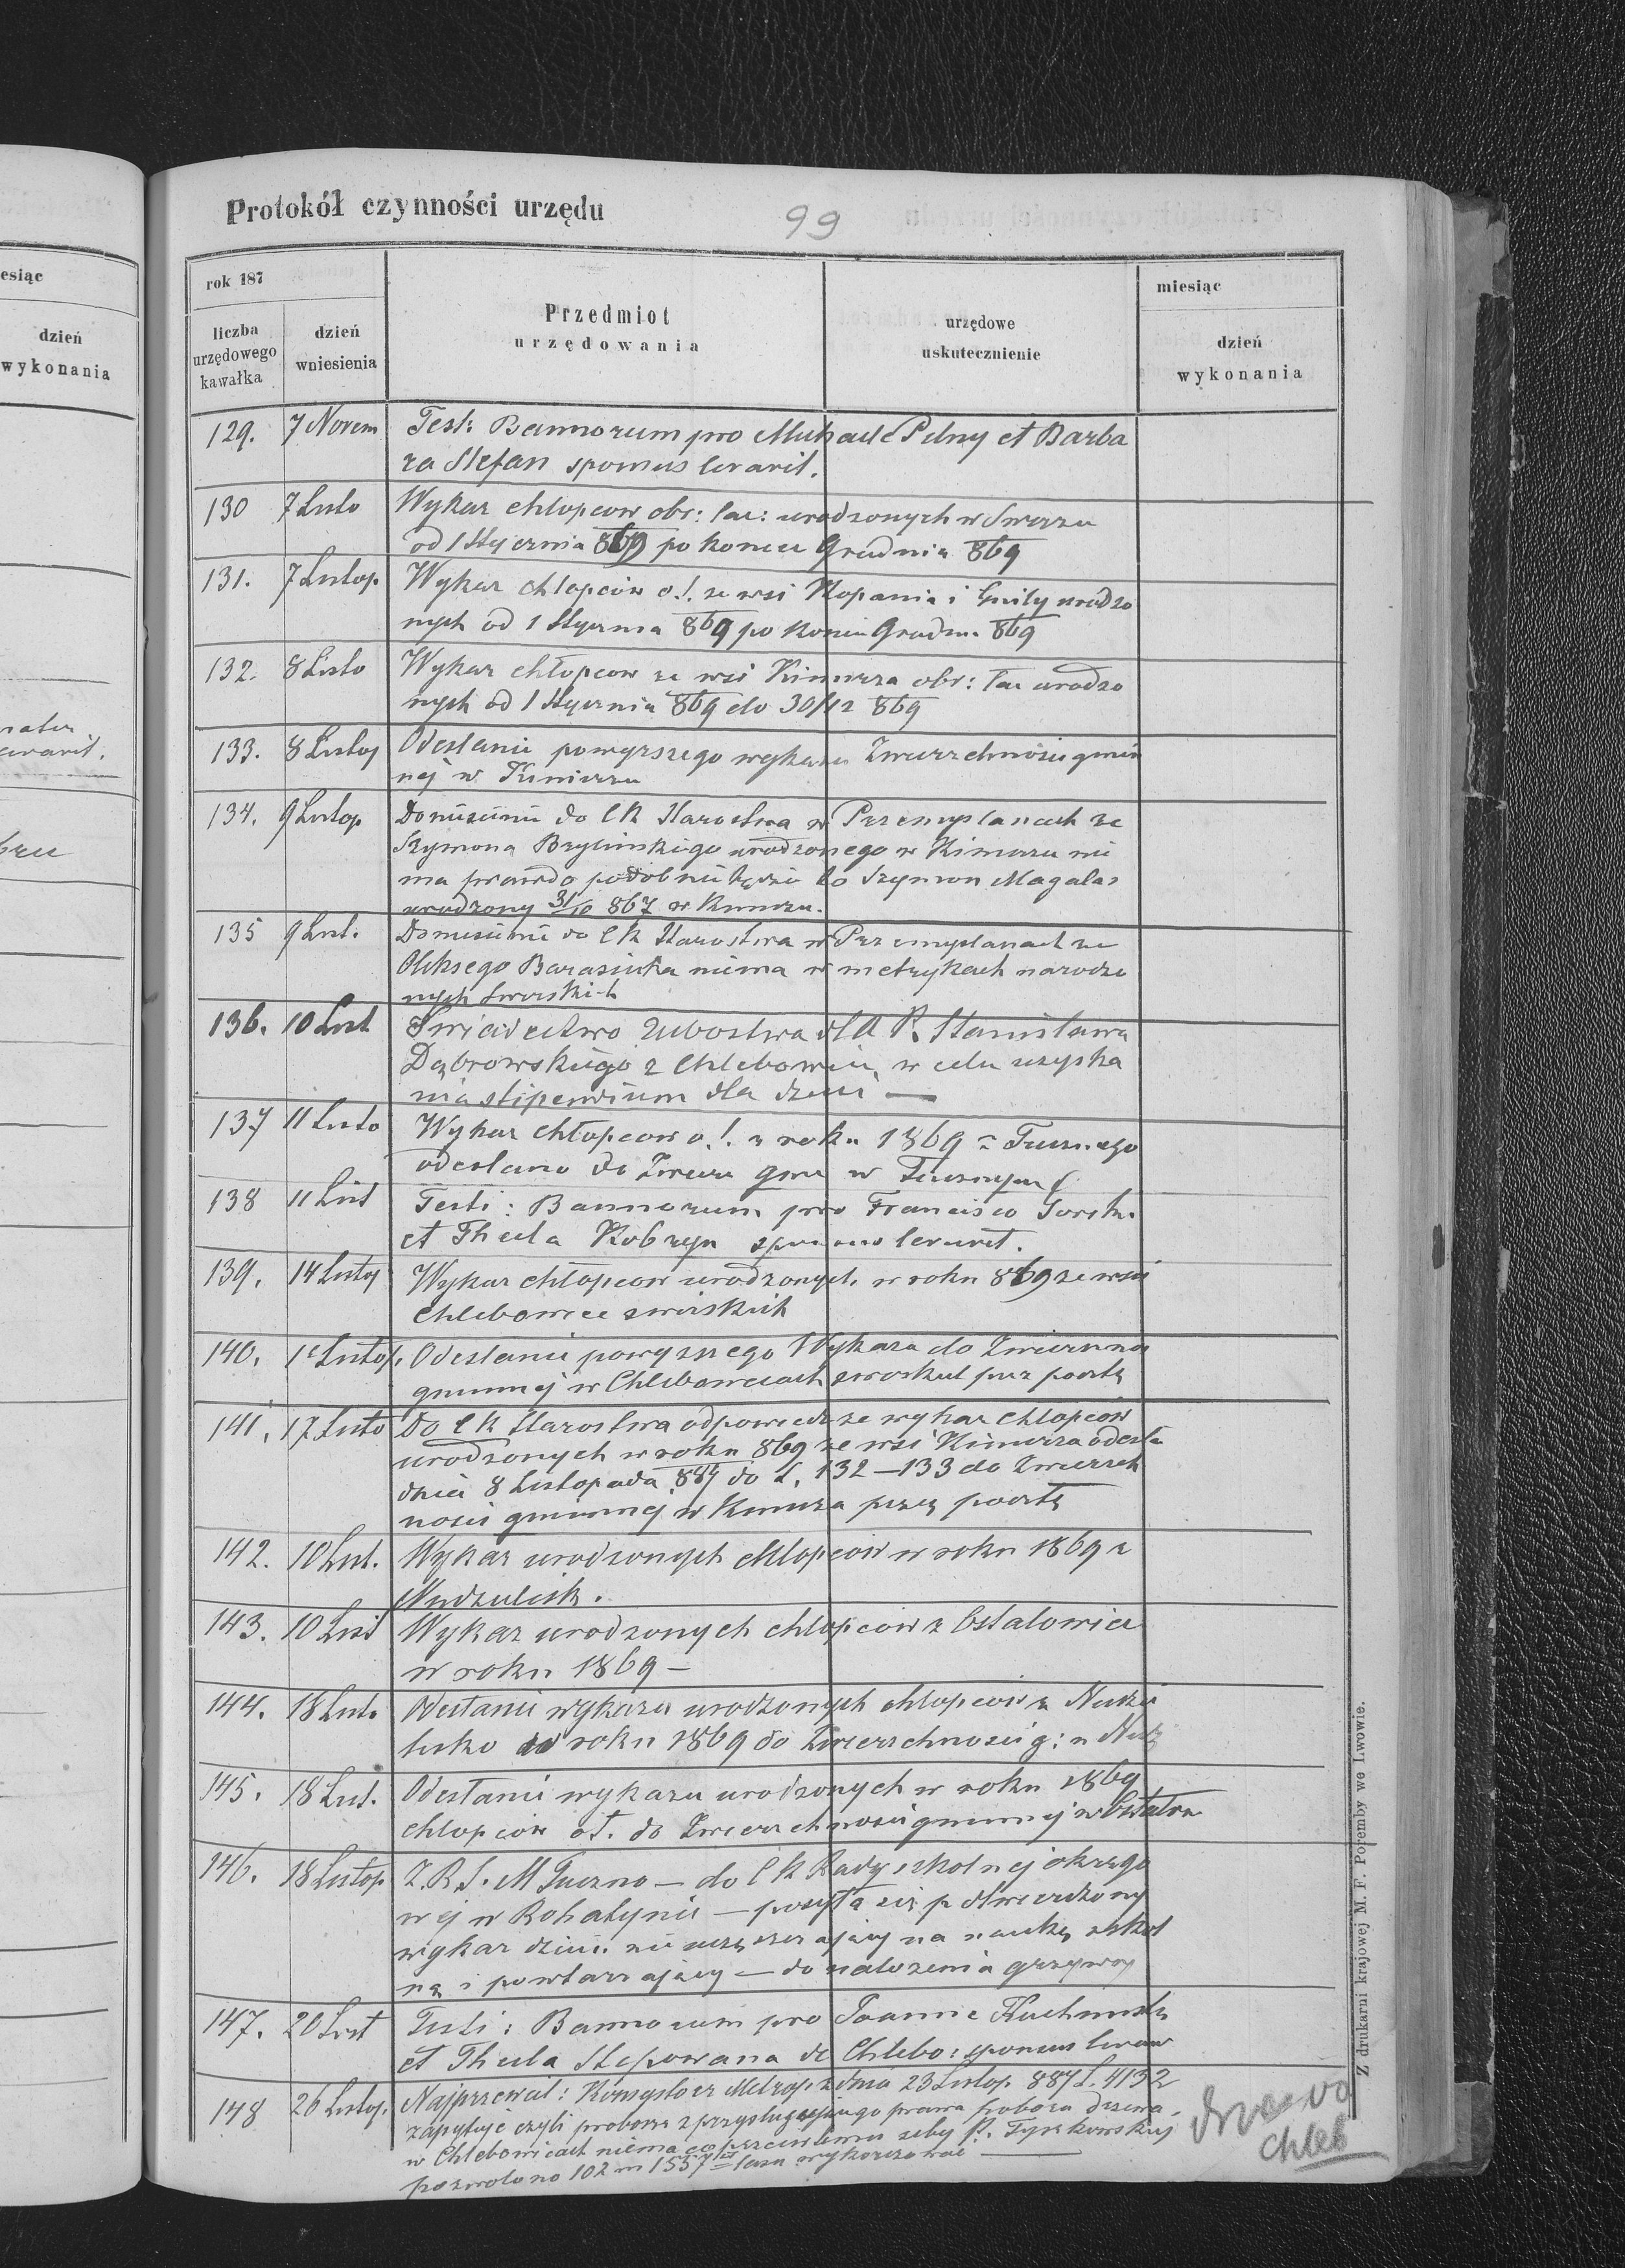 Protokół czynności urzędu
99
esiąc
dzień
wykonania
rok 187
liczba
urzędowego
kawałka
dzień
wniesienia
Przedmiot
urzędowania
urzędowe
uskutecznienie
miesiąc
dzień
wykonania
129. 7 Novem Test: Bannorum pro Michaele Pelny et Barba
ra Stefan sponsus levavit.
130 7 Listo Wykaz chłopcow obr: łac: urodzonych w Swirzu
od 1 Stycznia 869 po koniec Grudnia 869
131. 7 Listop. Wykaz chłopców o.ł. ze wsi Kopania i urodzo
nych od 1 Stycznia 869 po koniec Grudnia 869
132. 8 Listo Wykaz chłopcow ze wsi Kimirza obr: łac urodzo
nych od 1 Stycznia 869 do 30/12 869
133. 8 Listop Odesłanie powyższego wykazu Zwierzchności gmin
nej w Kimirzu
134. 9 Listop Doniesienie do CK Starostwa w Przemyslanach że
Szymona urodzonego w Kimirzu nie
ma prawdopodobnie będzie to Szymon Magalas
urodzony 31/10 867 w Kimirzu.
135 9 List. Doniesienie do CK Starostwa w Przemyslanach że
Oleksego niema w metrykach narodzo
nych Swirskich
136. 10 List Swiadectwo Ubostwa dla P. Stanisława
Dąbrowskiego z Chlebowic, w celu uzyska
nia stipendium dla dzieci —
137 11 Listo Wykaz chłopcow o.ł. z roku 1869 z Tucznego
odesłano do Zwierz gmi w Tucznym
138 11 List Testi: Bannorum pro Francisco
et Thecla Kobryn sponsus levavit.
139. 14 Listop Wykaz chłopcow urodzonych w roku 869 ze wsi
Chlebowice swirskich
140. Listop. Odesłanie powyższego Wykazu do Zwierzchno
gminnej w Chlebowicach swirskich prz pocztę
141. 17 Listo Do CK Starostwa odpowiedź że wykaz chłopców
urodzonych w roku 869 ze wsi Kimirza odesła
dnia 8 Listopada 887 do L. 132—133 do Zwierzch
nosci gminnej w Kimirza przez pocztę
142. 10 List. Wykaz urodzonych chłopców w roku 1869 z
143. 10 List Wykaz urodzonych chłopców z Ostalowice
w roku 1869 —
144. 18 List. Odesłanie wykazu urodzonych chłopców z
roku 1869 do Zwierzchności g: w
145. 18 List. Odesłanie wykazu urodzonych w roku 1869
chłopców oł. do Zwierzchności gminnej w
146. 18 Listop Z.R.S. M Tuczno — do CK Rady szkolnej okręgo
wej w Rohatynie — posyła się potwierdzony
wykaz dzieci nie uczęszczający na naukę szkol
ną i powtarzający — do nałożenia grzywny
147. 20 List Testi: Bannorum pro Joanne
et Thecla Stepowana de Chlebo: sponsus levav
148 26 Listop. Najprzewiel: Konsystorz Metrop: z dnia 23 Listop. 887 L. 4132
zapytuje czyli proboszcz z przysługującego prawa poboru drzewa
w Chlebowicach niema
pozwolono 102 m 1557 lasu wykorczować —
drzewo
chleb
Z drukarni krajowej M. F. Poremby we Lwowie.